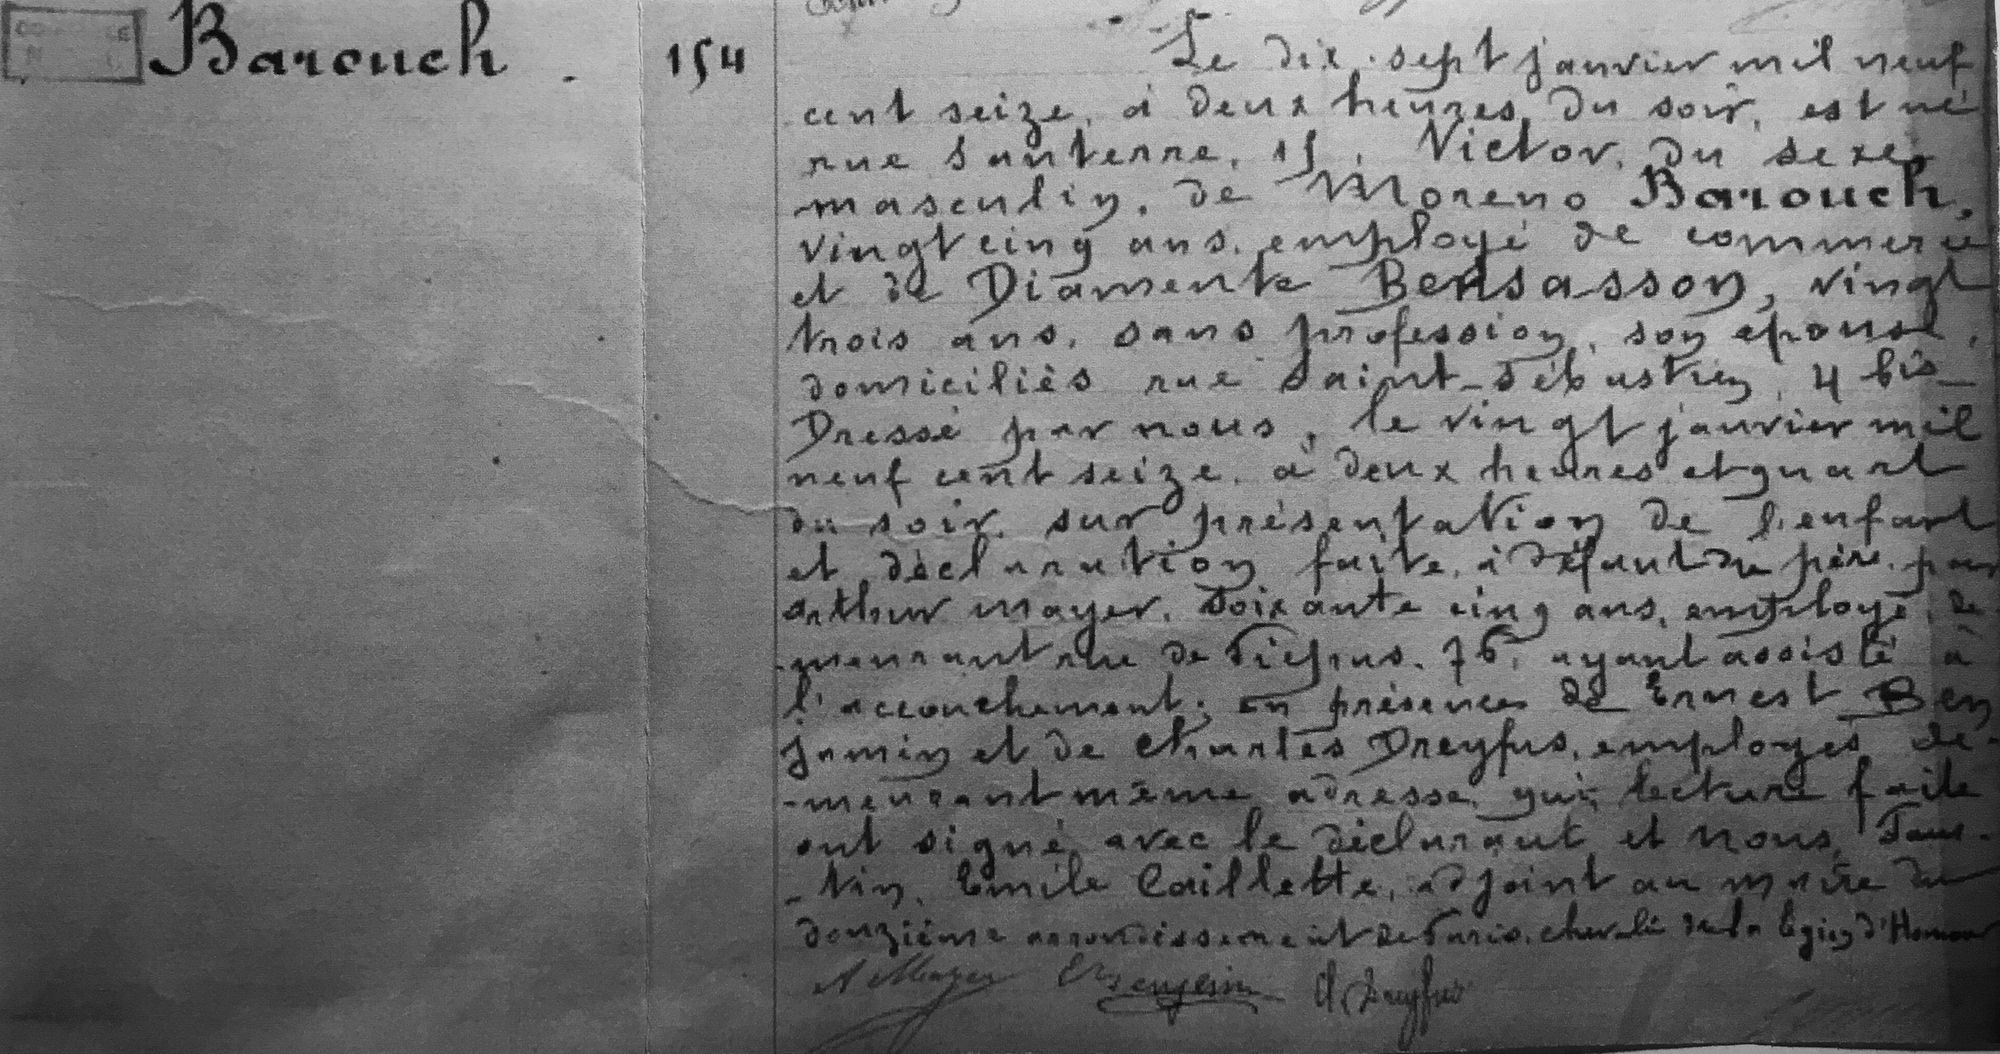 Barouch.
154
Le dix-sept janvier mil neuf
cent seize, à deux heures du soir, est né
rue Santerre, 15, Victor, du sexe
masculin, de Moreno Barouch,
vingt cinq ans, employé de commerce
et de Diamente Bensasson, vingt
trois ans, sans profession, son épouse,
domiciliés rue Saint-Sébastien, 4 bis_
Dressé par nous, le vingt janvier mil
neuf cent seize, à deux heures et quart
du soir, sur présentation de l'enfant
et déclaration faite, à défaut du père, par
Arthur Mayer, soixante cinq ans, employé, de-
-meurant rue de Picpus, 76, ayant assisté à
l'accouchement; en présence de Ernest Ben
jamin et de Charles Dreyfus, employés, de-
-meurant même adresse, qui, lecture faite
ont signé avec le déclarant et nous,
Emile Caillette, adjoint au maire du
douzième arrondissement de Paris, chevalier de la Légion d'Honneur
A Mayer E Benjamin Ch Dreyfus